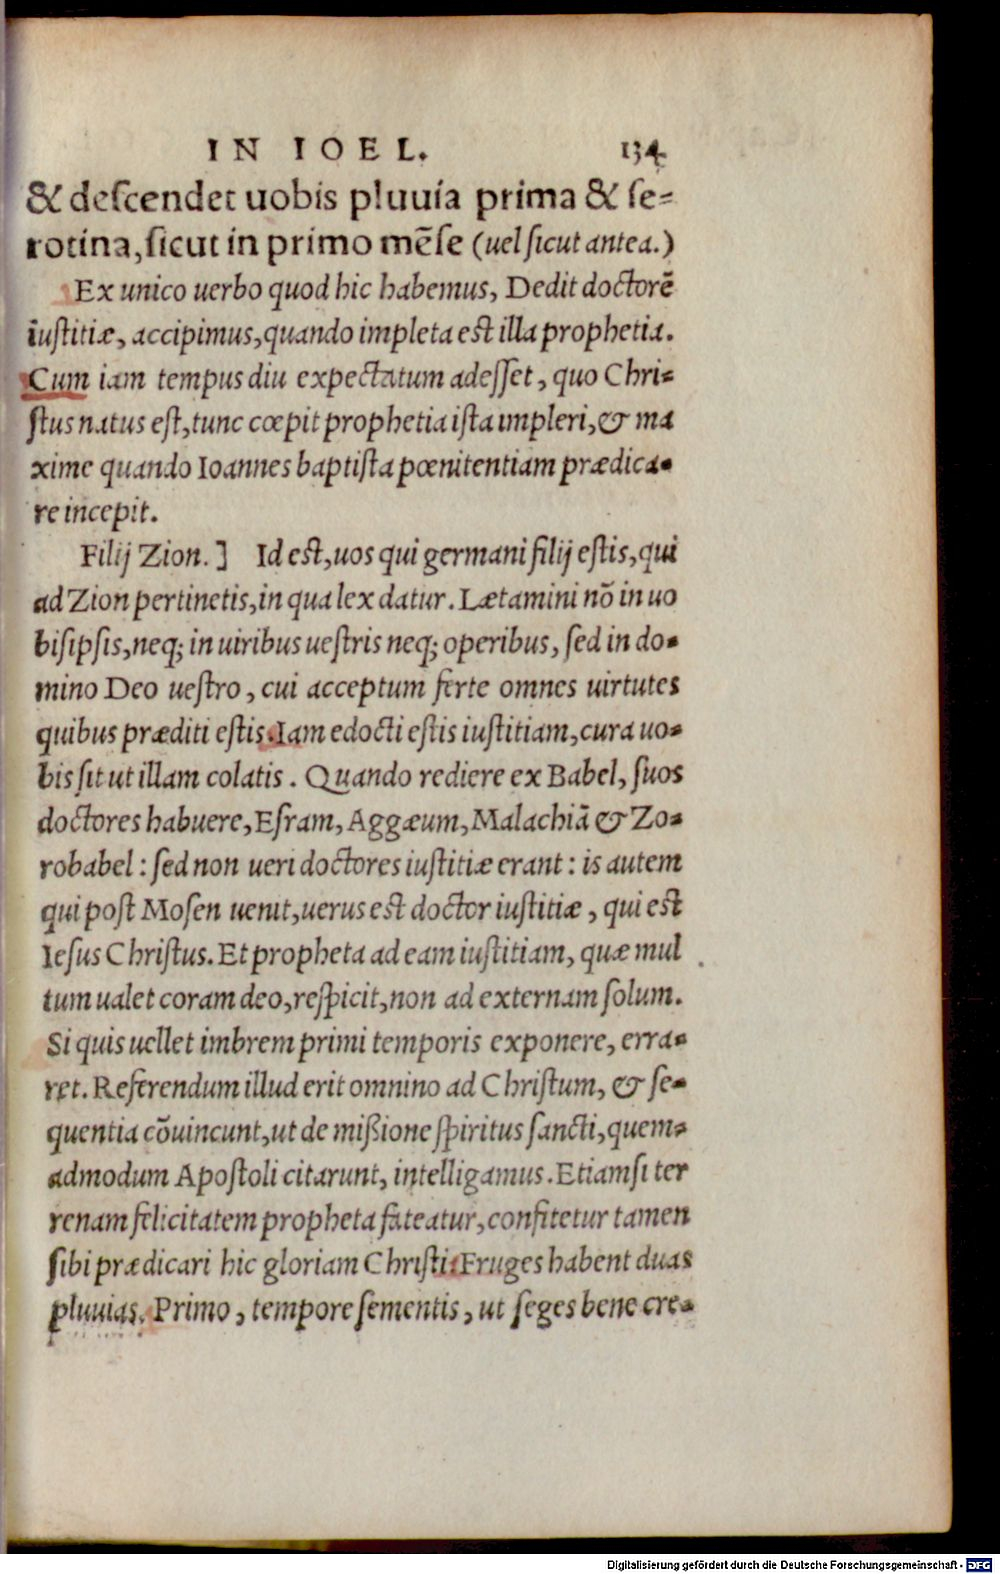 IN IOEL. 134
& descendet uobis pluuia prima & se-
rotina, sicut in primo mēse (uel sicut antea.)
Ex unico uerbo quod hic habemus, Dedit doctorē
iustitiæ, accipimus, quando impleta est illa prophetia.
Cum iam tempus diu expectatum adesset, quo Chri-
stus natus est, tunc cœpit prophetia ista impleri, & ma
xime quando Ioannes baptista pœnitentiam prædica-
re incepit.
Filij Zion.] Id est, uos qui germani filij estis, qui
ad Zion pertinetis, in qua lex datur. Lætamini nō in uo
bisipsis, neq; in uiribus uestris neq; operibus, sed in do-
mino Deo uestro, cui acceptum ferte omnes uirtutes
quibus præditi estis. Iam edocti estis iustitiam, cura uo-
bis sit ut illam colatis. Quando rediere ex Babel, suos
doctores habuere, Esram, Aggæum, Malachiā & Zo-
robabel: sed non ueri doctores iustitiæ erant: is autem
qui post Mosen uenit, uerus est doctor iustitiæ, qui est
Iesus Christus. Et propheta ad eam iustitiam, quæ mul
tum ualet coram deo, respicit, non ad externam solum.
Si quis uellet imbrem primi temporis exponere, erra-
ret. Referendum illud erit omnino ad Christum, & se-
quentia cōuincunt, ut de mißione spiritus sancti, quem-
admodum Apostoli citarunt, intelligamus. Etiamsi ter
renam felicitatem propheta fateatur, confitetur tamen
sibi prædicari hic gloriam Christi: Fruges habent duas
pluuias. Primo, tempore sementis, ut seges bene cre-
Digitalisierung gefördert durch die Deutsche Forschungsgemeinschaft - DFG